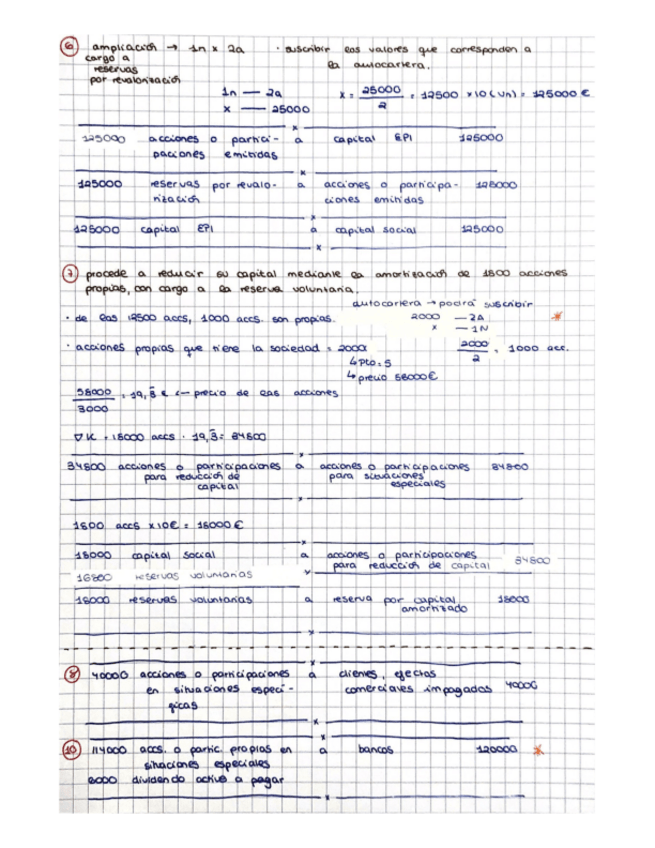 6 ampliación → 1n x 2a · suscribir las valores que corresponden a
cargo a la autocartera.
reservas
por revalorización
1n — 2a x = 25000 / 2 = 12500 x10 (Vn) = 125000 €
x — 25000
125000 acciones o partici- a capital EPI 125000
paciones emitidas
125000 reservas por revalo- a acciones o participa- 125000
rización ciones emitidas
125000 capital EPI a capital social 125000
7 procede a reducir su capital mediante la amortización de 1800 acciones
propias, con cargo a la reserva voluntaria.
autocartera → podrá suscribir
· de las 12500 accs, 1000 accs. son propias. 2000 — 2A *
x — 1N
· acciones propias que tiene la sociedad = 2000 2000 / 2 = 1000 acc.
↳ pto: 5
↳ precio 58000€
58000 / 3000 = 19,3 € ← precio de las acciones
▽K = 18000 accs · 19,3 = 34800
34800 acciones o participaciones a acciones o participaciones 34800
para reducción de para situaciones
capital especiales
1800 accs x10€ = 18000€
18000 capital social a acciones o participaciones 34800
para reducción de capital
16800 reservas voluntarias
18000 reservas voluntarias a reserva por capital 18000
amortizado
8 40000 acciones o participaciones a clientes, efectos
en situaciones especí- comerciales impagados 40000
ficas
10 114000 accs. o partic. propias en a bancos 120000 *
situaciones especiales
6000 dividendo activo a pagar